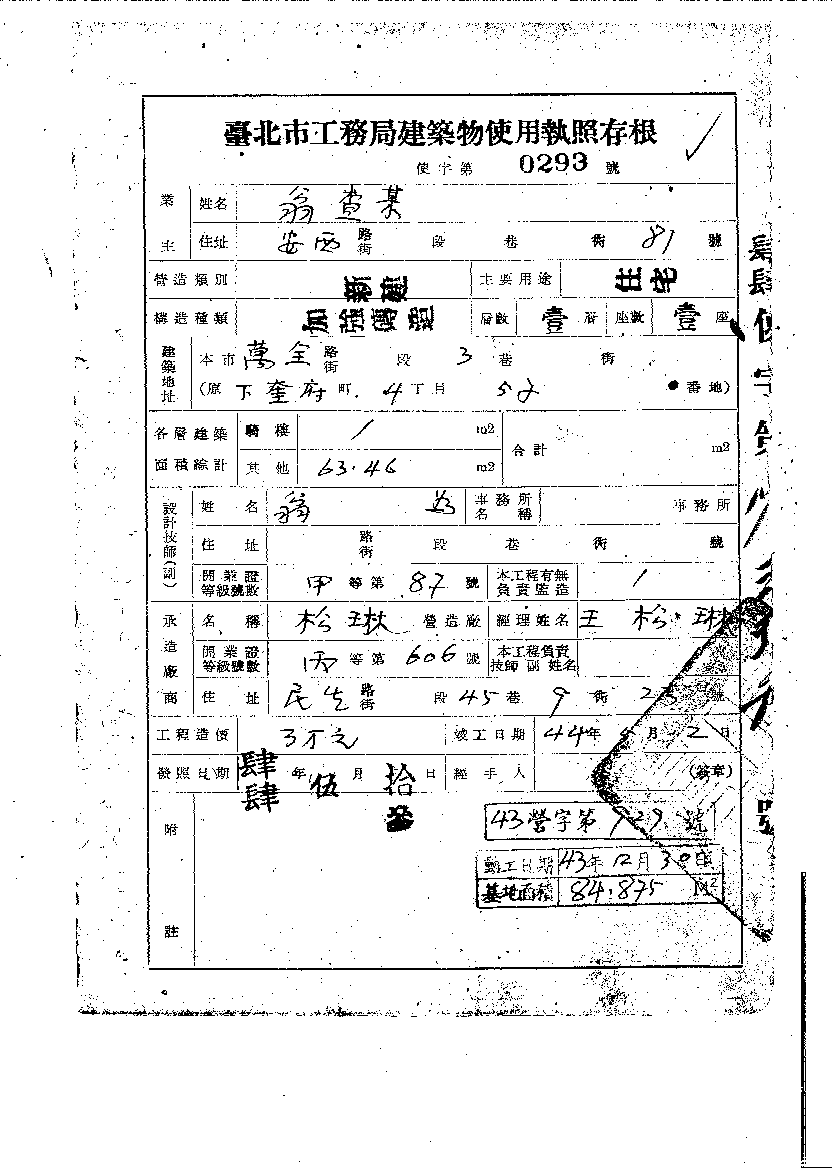 臺北市工務局建築物使用執照存根
使字第 0293 號
業主 姓名 翁查某
住址 安西 路街 段 巷 衖 81 號
營造類別 新建 主要用途 住宅
構造種類 加強磚造 層數 壹層 座數 壹座
建築地址 本市萬全路街 段 3 巷 衖
(原下奎府町 4丁目 番地)
各層建築面積綜計 騎樓 / m2 合計 m2
其他 63.46 m2
設計技師(副) 姓名 翁 事務所名稱 事務所
住址 路街 段 巷 衖 號
開業證等級號數 甲等第 87 號 本工程有無負責監造 /
承造廠商 名稱 松琳 營造廠 經理姓名 王松琳
開業證等級號數 丙等第 606 號 本工程負責技師副姓名
住址 民生路街 段 45 巷 9 衖 號
工程造價 3万元 竣工日期 44年 月 2日
發照日期 肆肆年 伍月 拾 日 經手人 (簽章)
附註
43營字第 929 號
動工日期 43年12月30日
基地面積 84.875 M2
肆肆使字第 號